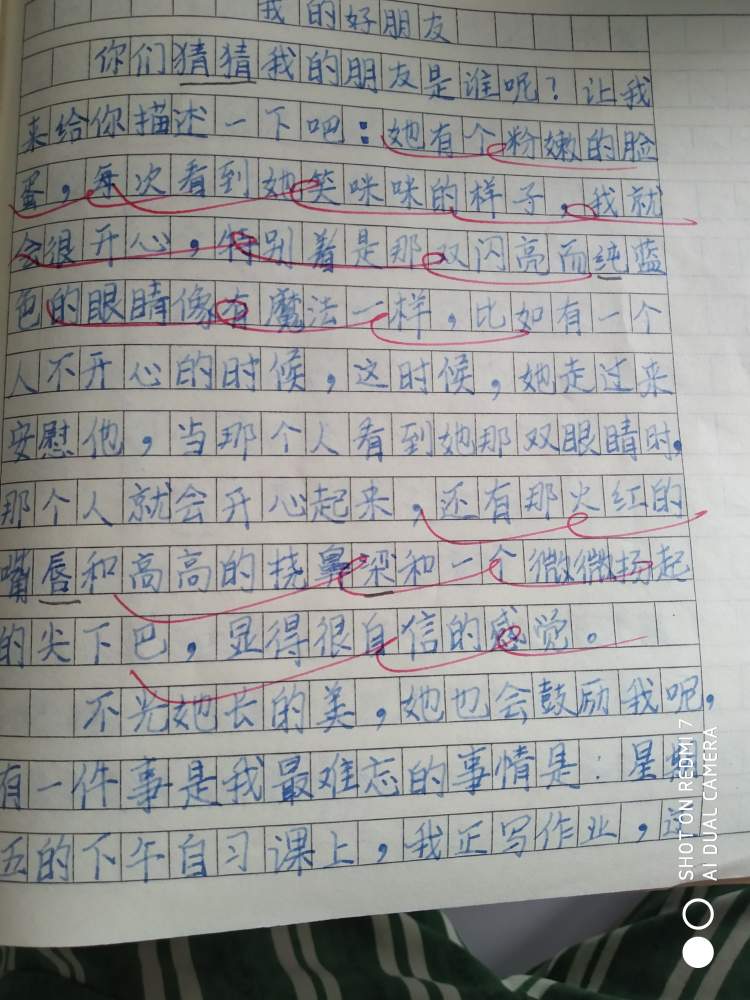 我的好朋友
你们猜猜我的朋友是谁呢？让我
来给你描述一下吧：她有个粉嫩的脸
蛋，每次看到她笑咪咪的样子，我就
会很开心，特别着是那双闪亮而纯蓝
色的眼睛像有魔法一样，比如有一个
人不开心的时候，这时候，她走过来
安慰他，当那个人看到她那双眼睛时，
那个人就会开心起来，还有那火红的
嘴唇和高高的挠鼻梁和一个微微扬起
的尖下巴，显得很自信的感觉。
不光她长的美，她也会鼓励我呢，
有一件事是我最难忘的事情是：星期
五的下午自习课上，我正写作业，这
SHOT ON REDMI 7
AI DUAL CAMERA